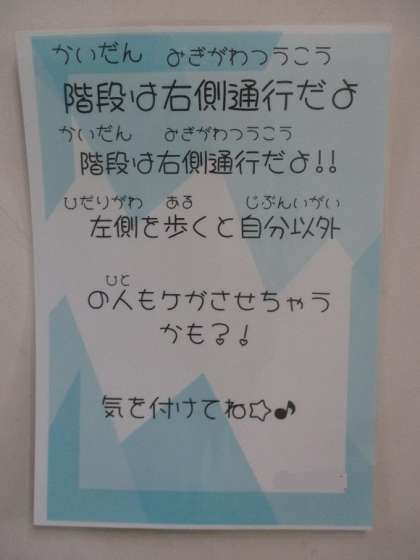 かいだん　みぎがわつうこう
階段は右側通行だよ
かいだん　みぎがわつうこう
階段は右側通行だよ!!
ひだりがわ　ある　じぶんいがい
左側を歩くと自分以外
ひと
の人もケガさせちゃう
かも?!
気を付けてね☆♪